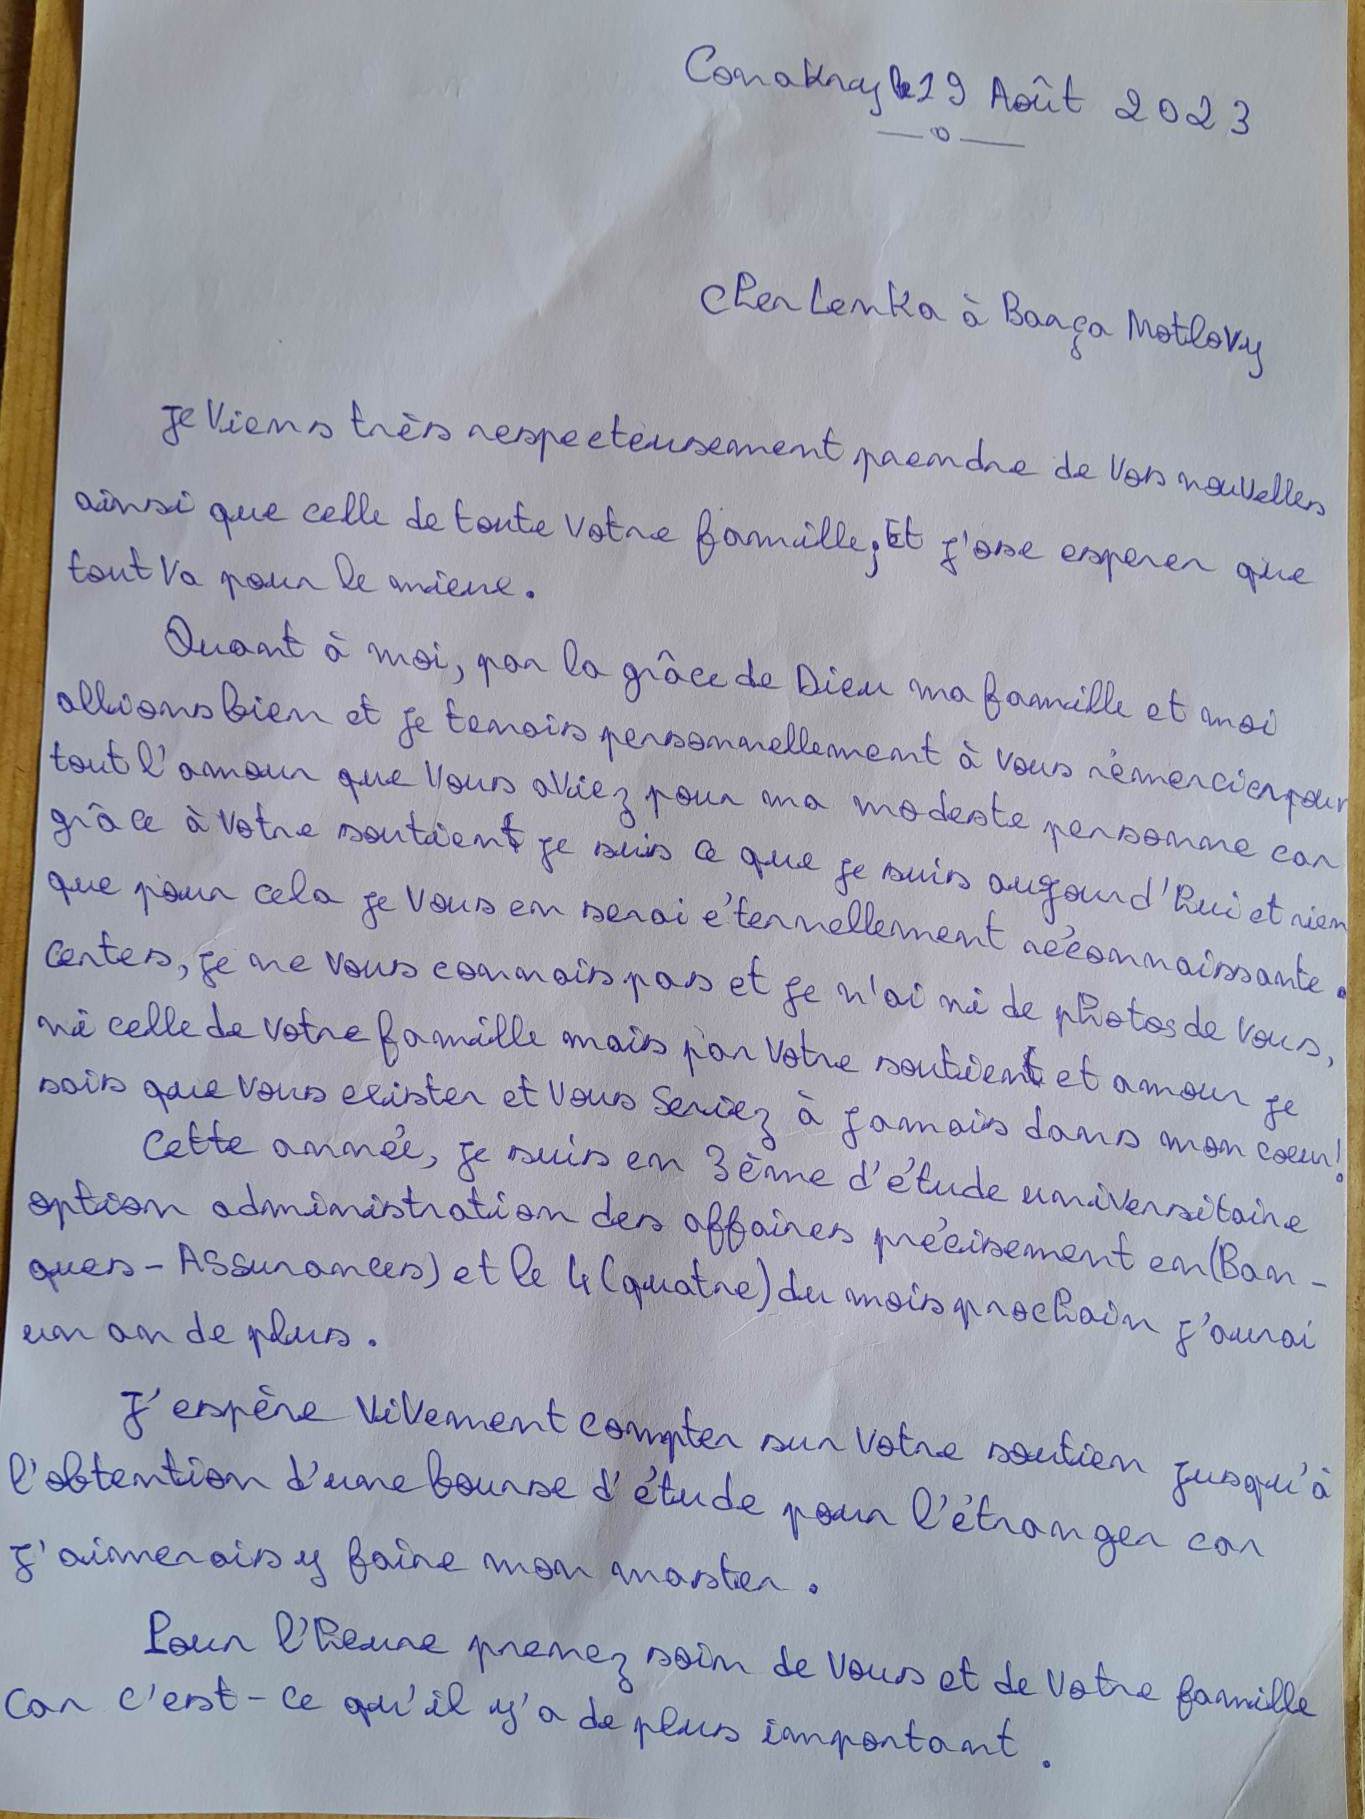 Conakry le 19 Août 2023
—o—
cher Lenka à Barça Motlovy
je viens très respecteusement prendre de vos nouvelles
ainsi que celle de toute votre famille, Et j'ose esperer que
tout va pour le mieux.
Quant à moi, par la grâce de Dieu ma famille et moi
allions bien et je tenais personnellement à vous rémercier pour
tout l'amour que vous aviez pour ma modeste personne car
grâce à votre soutient je suis ce que je suis aujourd'hui et rien
que pour cela je vous en serai éternellement réconnaissante.
certes, je ne vous connais pas et je n'ai ni de photos de vous,
ni celle de votre famille mais par votre soutient et amour je
sais que vous exister et vous seriez à jamais dans mon cœur!
Cette année, je suis en 3ème d'étude universitaire
option administration des affaires précisement en (Ban-
ques-Assurances) et le 4 (quatre) du mois prochain j'aurai
un an de plus.
J'espère vivement compter sur votre soutien jusqu'à
l'obtention d'une bourse d'étude pour l'étranger car
j'aimerais y faire mon master.
Pour l'heure prenez soin de vous et de votre famille
car c'est-ce qu'il y'a de plus important.